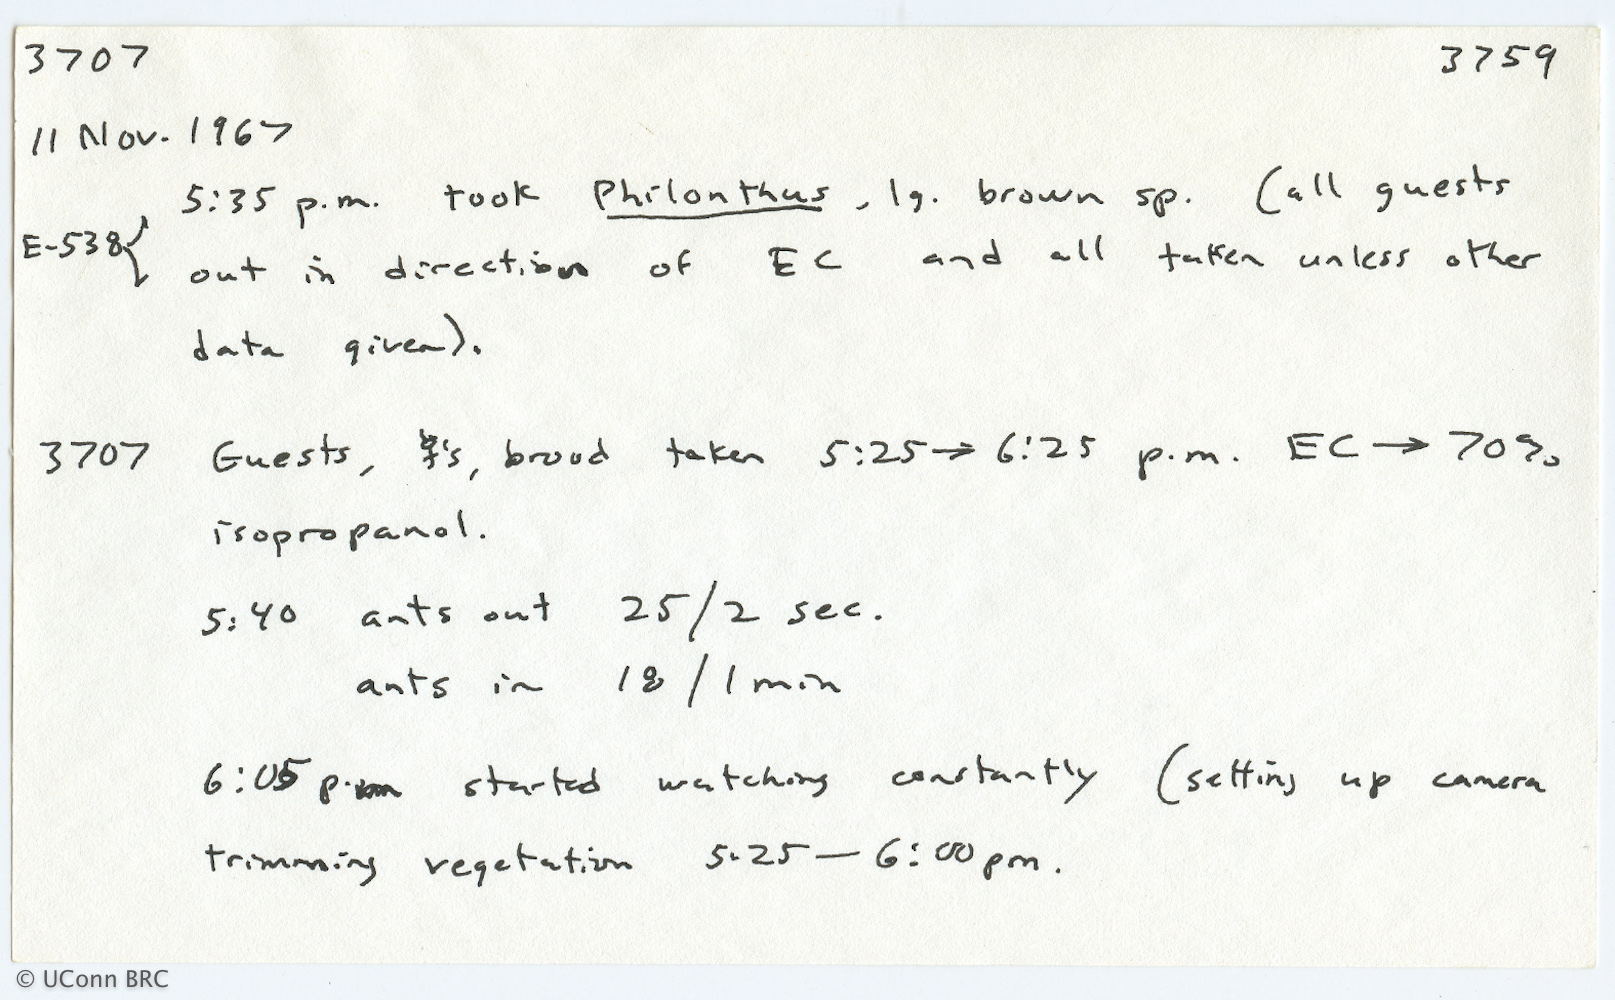 3707 3759
11 Nov. 1967
5:35 p.m. took Philonthus, lg. brown sp. (all guests
E-538{ out in direction of EC and all taken unless other
data given).
3707 Guests, ☿'s, brood taken 5:25→6:25 p.m. EC → 70%
isopropanol.
5:40 ants out 25/2 sec.
ants in 18/1 min
6:05 p.m started watching constantly (setting up camera
trimming vegetation 5:25—6:00 pm.
© UConn BRC